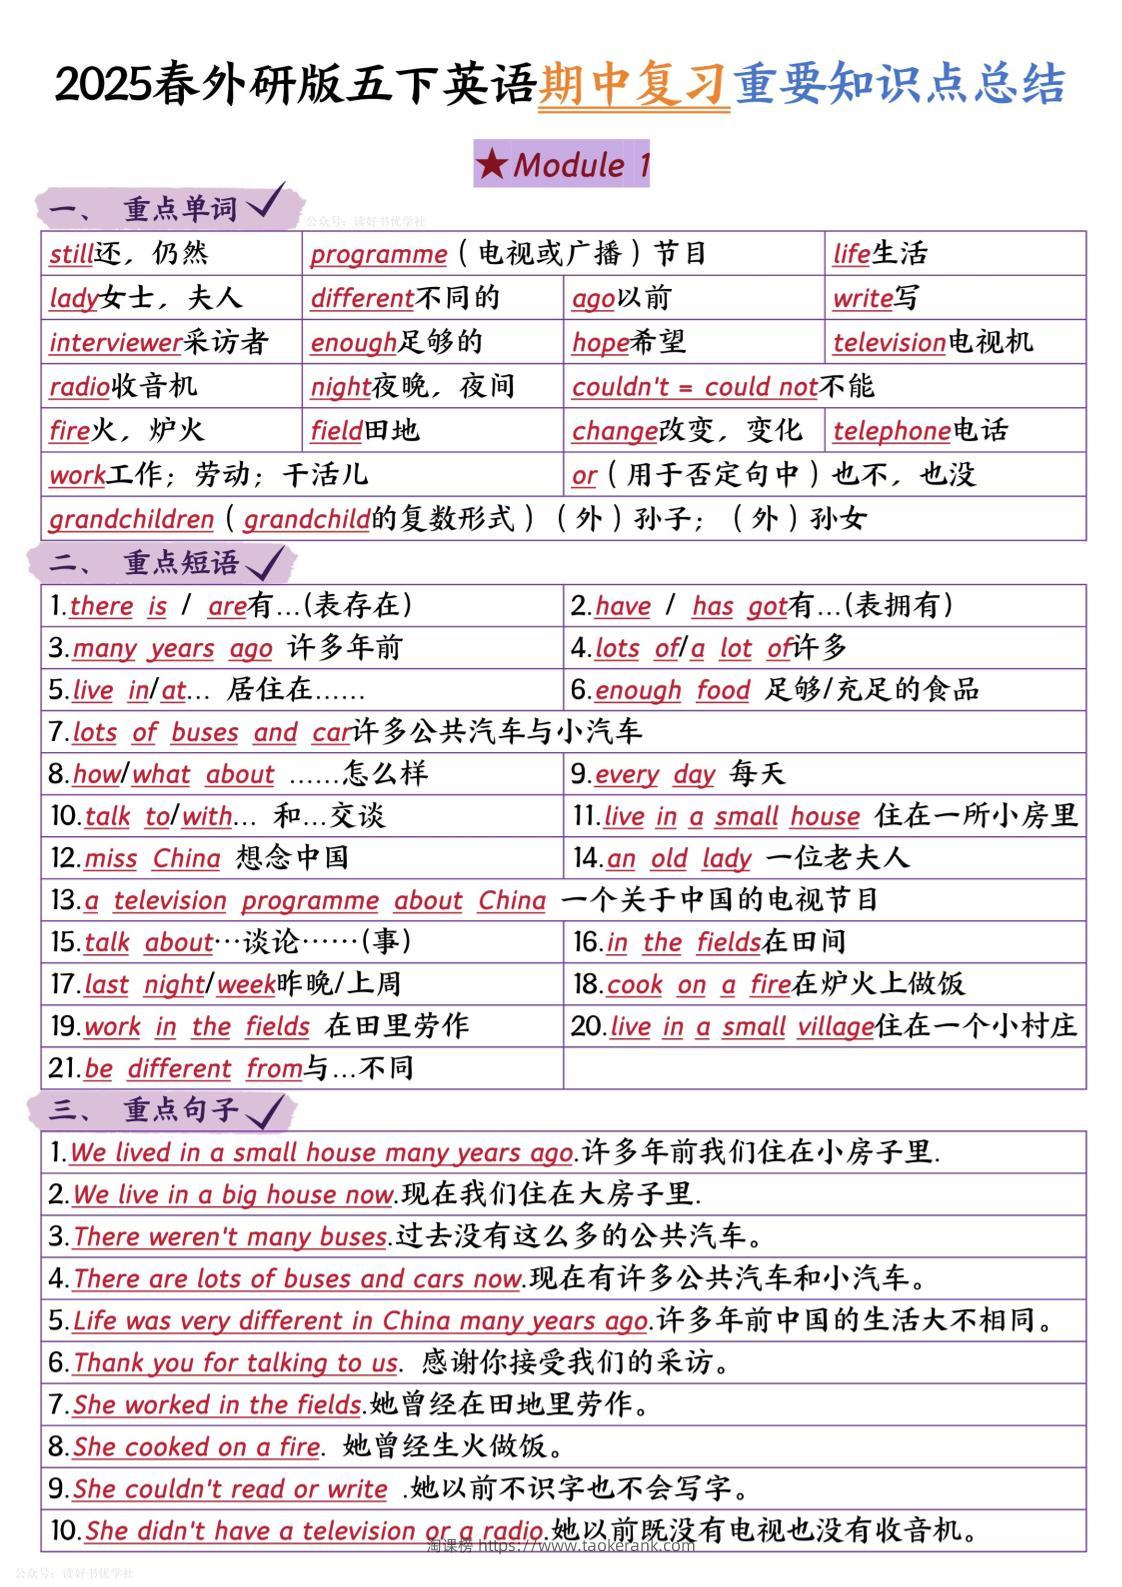 2025春外研版五下英语期中复习重要知识点总结
★Module 1
一、 重点单词
公众号：读好书优学社
still还，仍然 programme（电视或广播）节目 life生活
lady女士，夫人 different不同的 ago以前 write写
interviewer采访者 enough足够的 hope希望 television电视机
radio收音机 night夜晚，夜间 couldn't = could not不能
fire火，炉火 field田地 change改变，变化 telephone电话
work工作；劳动；干活儿 or（用于否定句中）也不，也没
grandchildren（grandchild的复数形式）（外）孙子；（外）孙女
二、 重点短语
1.there is / are有…(表存在) 2.have / has got有…(表拥有)
3.many years ago 许多年前 4.lots of/a lot of许多
5.live in/at… 居住在…… 6.enough food 足够/充足的食品
7.lots of buses and car许多公共汽车与小汽车
8.how/what about ……怎么样 9.every day 每天
10.talk to/with… 和…交谈 11.live in a small house 住在一所小房里
12.miss China 想念中国 14.an old lady 一位老夫人
13.a television programme about China 一个关于中国的电视节目
15.talk about…谈论……(事) 16.in the fields在田间
17.last night/week昨晚/上周 18.cook on a fire在炉火上做饭
19.work in the fields 在田里劳作 20.live in a small village住在一个小村庄
21.be different from与…不同
三、 重点句子
1.We lived in a small house many years ago.许多年前我们住在小房子里.
2.We live in a big house now.现在我们住在大房子里.
3.There weren't many buses.过去没有这么多的公共汽车。
4.There are lots of buses and cars now.现在有许多公共汽车和小汽车。
5.Life was very different in China many years ago.许多年前中国的生活大不相同。
6.Thank you for talking to us. 感谢你接受我们的采访。
7.She worked in the fields.她曾经在田地里劳作。
8.She cooked on a fire. 她曾经生火做饭。
9.She couldn't read or write .她以前不识字也不会写字。
10.She didn't have a television or a radio.她以前既没有电视也没有收音机。
淘课榜 https://www.taokerank.com
公众号：读好书优学社